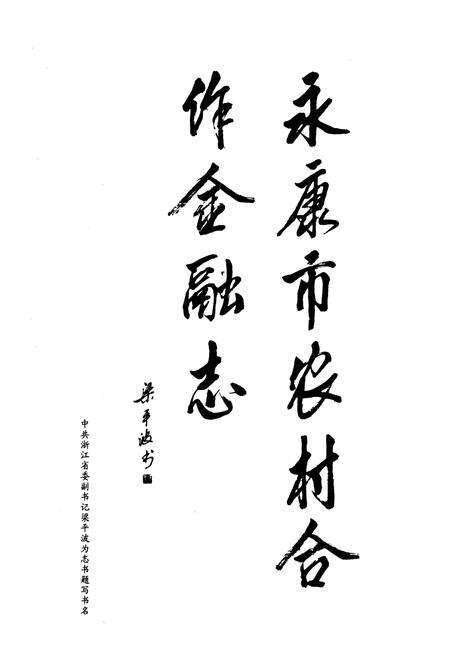 永康市农村合
作金融志
梁平波书
中共浙江省委副书记梁平波为志书题写书名